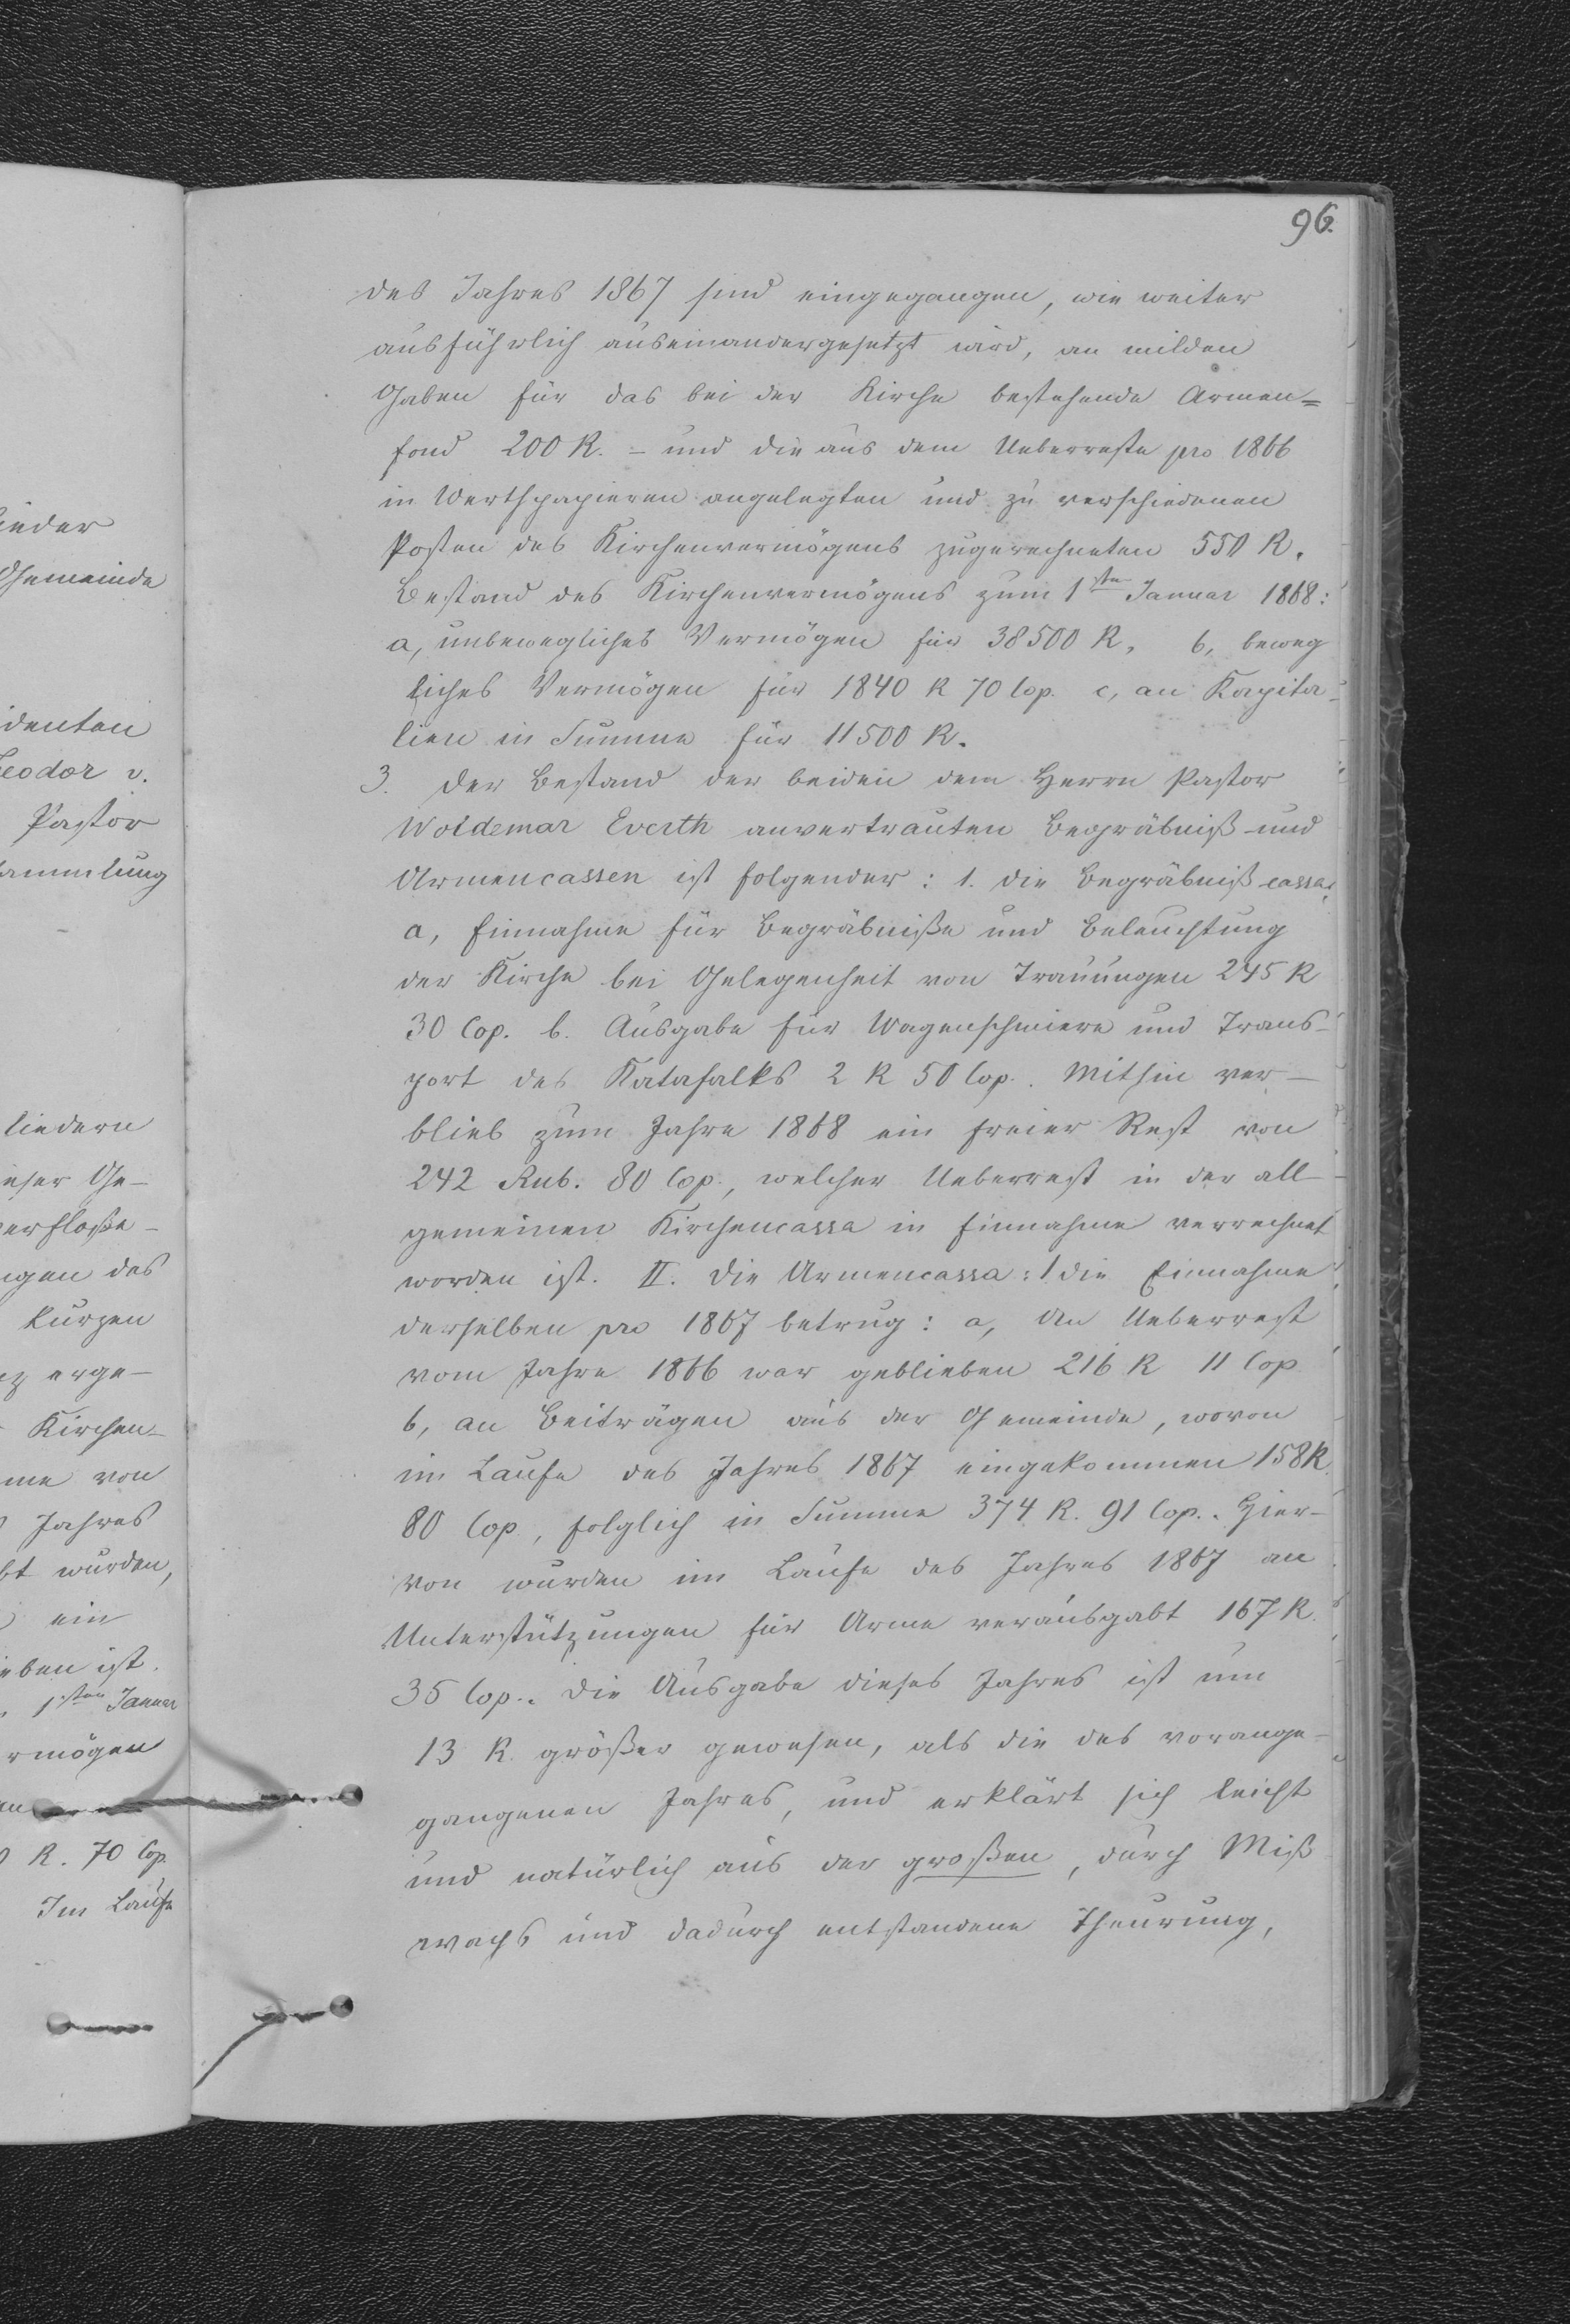 96.
des Jahres 1867 sind eingegangen, wie weiter
ausführlich auseinandergesetzt wird, an milden
Gaben für das bei der Kirche bestehende Armen=
fond 200 R. – und die aus dem Ueberreste pro 1866
in Werthpapieren angelegten und zu verschiedenen
Posten des Kirchenvermögens zugerechneten 550 R.
Bestand des Kirchenvermögens zum 1sten Januar 1868:
a, unbewegliches Vermögen für 38500 R, b, beweg
liches Vermögen für 1840 R 70 Cop. c, an Kapita-
lien in Summa für 11500 R.
3. Der Bestand der beiden dem Herrn Pastor
Woldemar Everth anvertrauten Begräbniß- und
Armencassen ist folgender: 1. die Begräbniß-cassa.
a, Einnahme für Begräbniße und Beleuchtung
der Kirche bei Gelegenheit von Trauungen 245 R
30 Cop. b. Ausgabe für Wagenschmiere und Trans-
port des Katafalks 2 R 50 Cop. Mithin ver-
blieb zum Jahre 1868 ein freier Rest von
242 Rub. 80 Cop., welcher Ueberrest in der all-
gemeinen Kirchencassa in Einnahme verrechnet
worden ist. II. Die Armencassa: 1 die Einnahme
derselben pro 1867 betrug: a, An Ueberrest
vom Jahre 1866 war geblieben 216 R 11 Cop
b, an Beiträgen aus der Gemeinde, wovon
im Laufe des Jahres 1867 eingekommen 158 R.
80 Cop., folglich in Summa 374 R. 91 Cop.. Hier-
von wurden im Laufe des Jahres 1867 an
Unterstützungen für Arme verausgabt 167 R.
35 Cop.. Die Ausgabe dieses Jahres ist um
13 R. größer gewesen, als die des vorange-
gangenen Jahres, und erklärt sich leicht
und natürlich aus der großen, durch Miß
wachs und dadurch entstandene Theurung,
Gemeinde
Pastor
liedern
kurzen
Kirchen-
Jahres
wurden,
ein
1sten Januar
R. 70 Cop.
Im Laufe